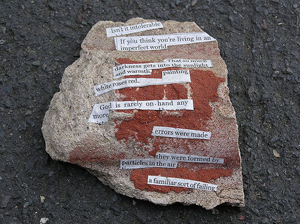 Isn't it intolerable
If you think you're living in an
imperfect world
That so much
darkness gets into the sunlight
and warmth,
painting
white roses red,
God is rarely on hand any
more
errors were made
they were formed to
particles in the air
a familiar sort of falling